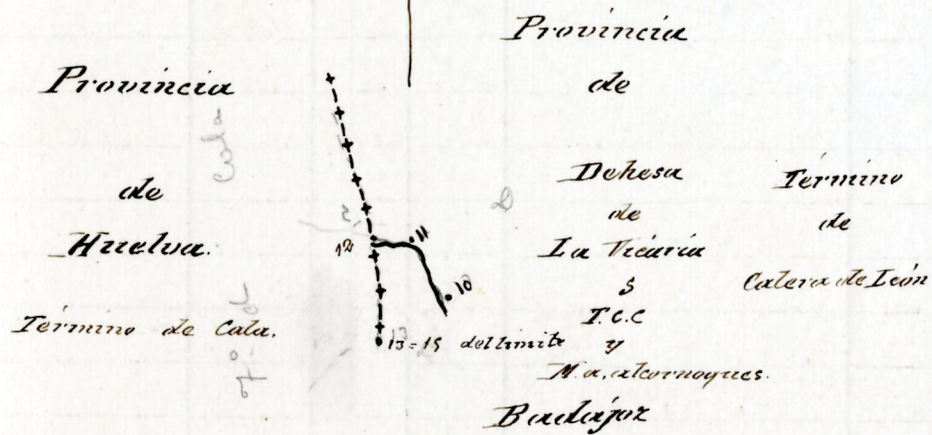 Provincia
de
Huelva.
Término de Cala.
Cala
12
11
10
13=15 del limite
Provincia
de
Dehesa
de
La Vicaría
S
T.C.C
y
M.a. alcornoques.
Badajoz
Término
de
Calera de León